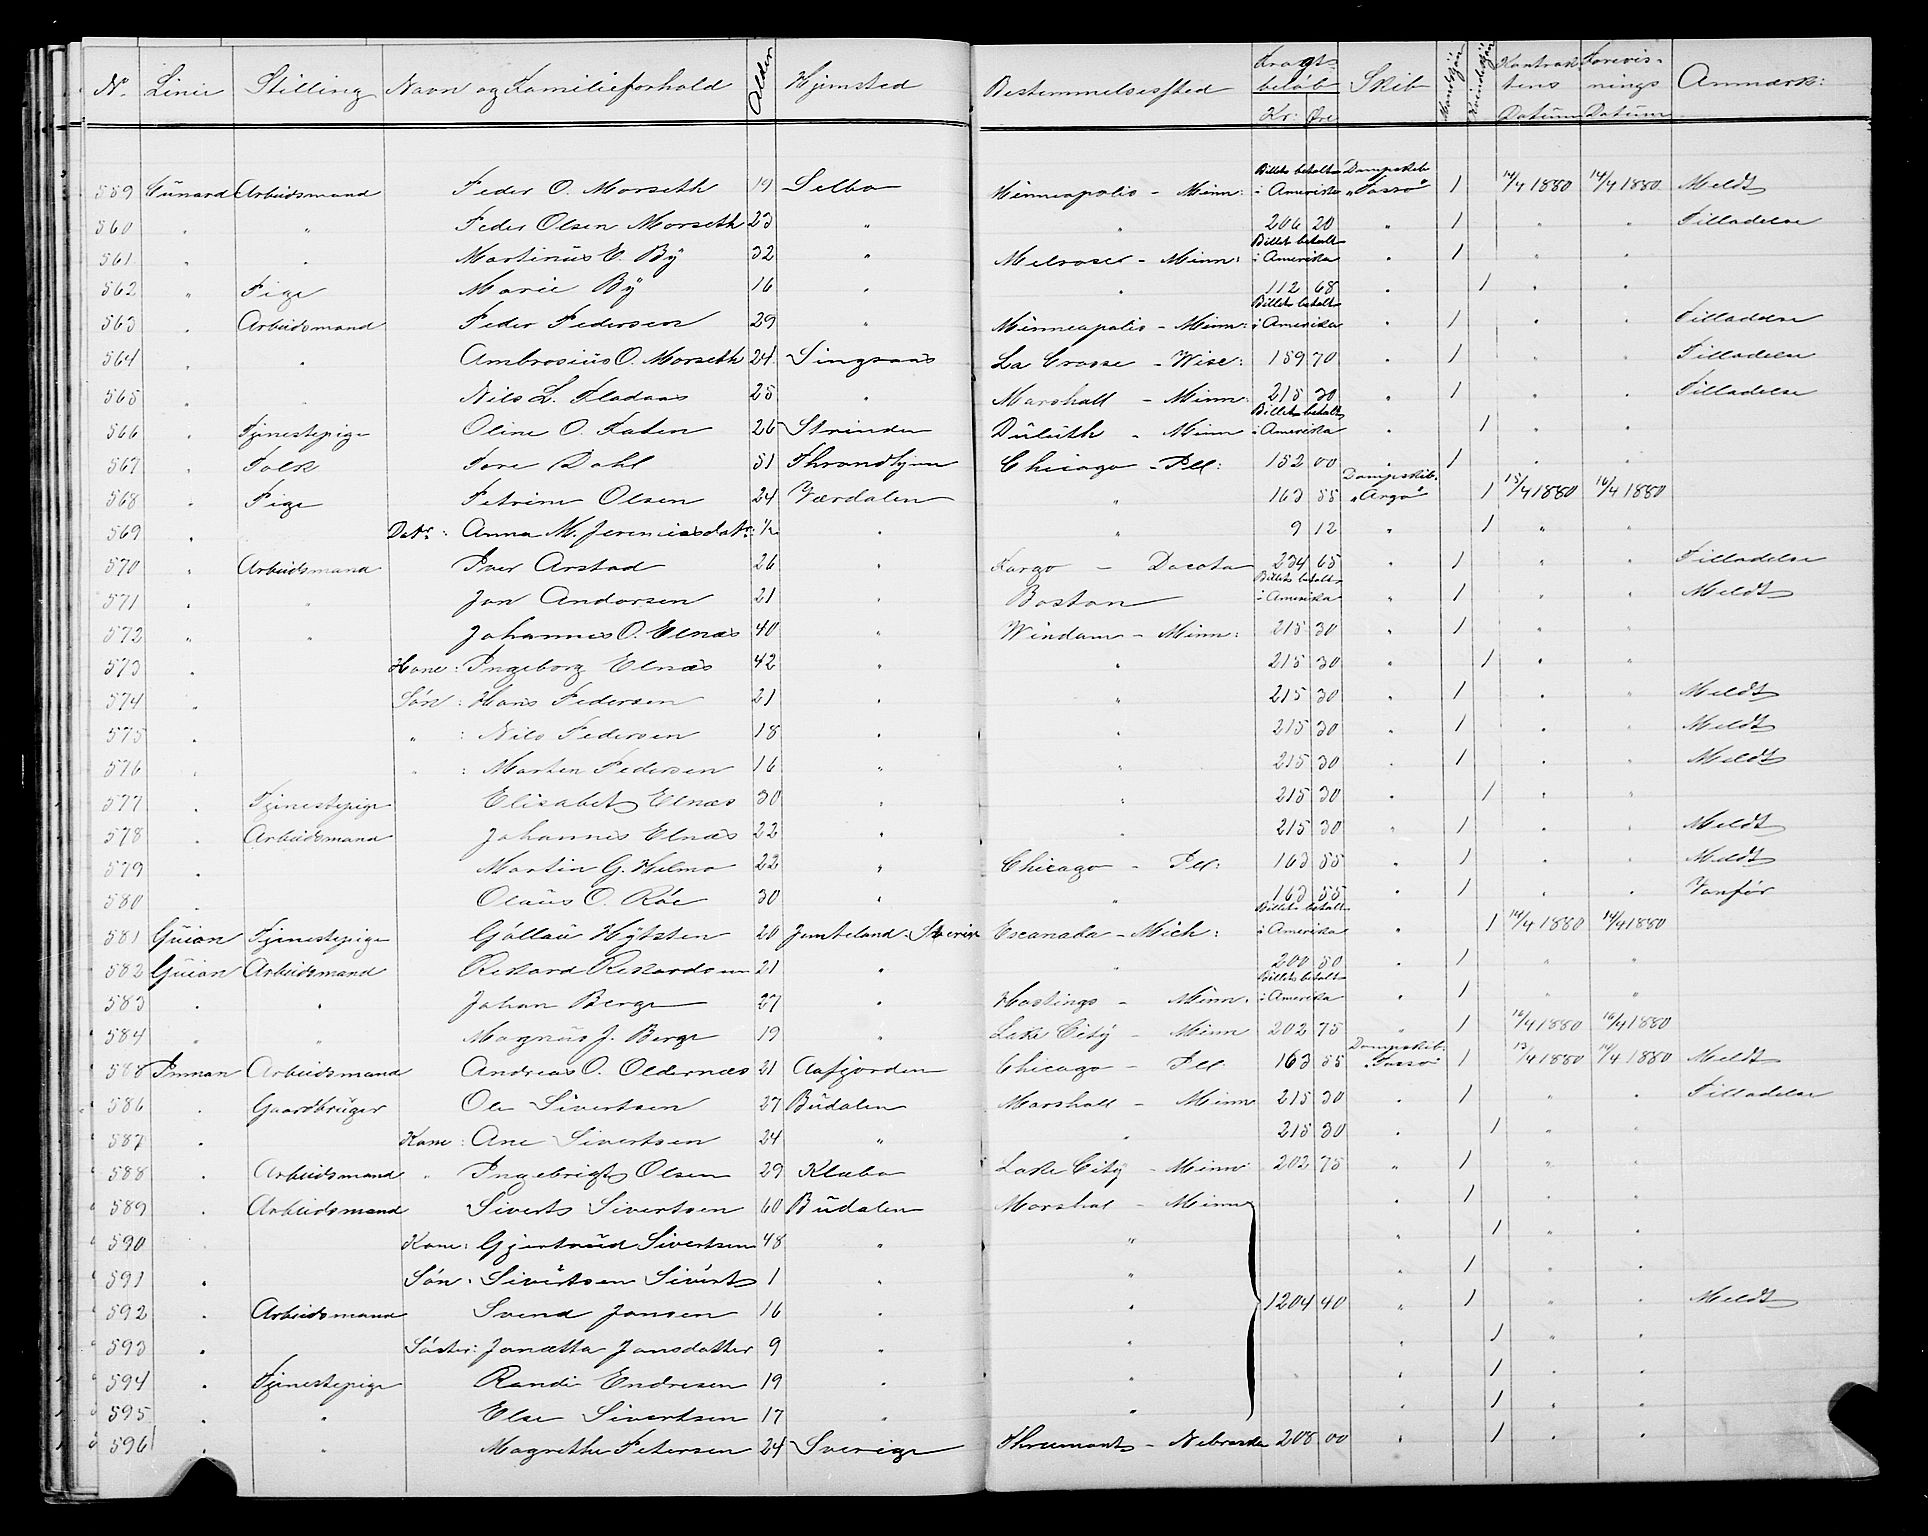 No. Linie Stilling Navn og Familieforhold Alder Hjemsted Bestemmelsessted Fragtbeløb Kr: Øre Skib Mandkjøn Kvindekjøn Kontraktens Datum Forevisnings Datum Anmærk:
559 Cunard Arbeidsmand Peder O. Morseth 19 Selbo Minneapolis - Minn: Billet betalt i Amerika Dampskib "Tasso" 1 14/4 1880 14/4 1880 Meldt
560 " " Peder Olsen Morseth 23 " " 206 20 " 1 " " Tilladelse
561 " " Martinus E. By 32 " Melrose - Minn: Billet betalt i Amerika " 1 " "
562 " Pige Marie By 16 " " 112 68 " 1 " "
563 " Arbeidsmand Peder Pedersen 29 " Minneapolis - Minn: Billet betalt i Amerika " 1 " " Tilladelse
564 " " Ambrosius O. Morseth 24 Singsaas La Crosse - Wisc: 159 70 " 1 " " Tilladelse
565 " " Nils L. Fladaas 25 " Marshall - Minn: 215 30 " 1 " " Tilladelse
566 " Tjenestepige Oline O. 26 Strinden Duluth - Minn Billet betalt i Amerika " 1 " "
567 " Tolk Tore Dahl 51 Throndhjem Chicago - Ill: 152 00 " 1 " "
568 " Pige Petrine Olsen 24 Værdalen " 163 55 Dampskib "Argo" 1 15/4 1880 16/4 1880
569 " Datr: Anna M. Jeremiasdatr: ½ " " 9 12 " 1 " "
570 " Arbeidsmand Iver Arstad 26 " Fargo - Dacota 234 65 " 1 " " Tilladelse
571 " " Jon Andorsen 21 " Boston Billet betalt i Amerika " 1 " " Meldt
572 " " Johannes O. Elnæs 40 " Windam - Minn: 215 30 " 1 " "
573 " Kone: Ingeborg Elnæs 42 " " 215 30 " 1 " "
574 " Søn: Hans Pedersen 21 " " 215 30 " 1 " " Meldt
575 " " : Nils Pedersen 18 " " 215 30 " 1 " " Meldt
576 " " : Morten Pedersen 16 " " 215 30 " 1 " " Meldt
577 " Tjenestepige Elisabet Elnæs 30 " " 215 30 " 1 " "
578 " Arbeidsmand Johannes Elnæs 22 " " 215 30 " 1 " " Meldt
579 " Martin G. Helmo 22 " Chicago - Ill: 163 55 " 1 " " Meldt
580 " Olaus O. Røe 30 " " 163 55 " 1 " " Vanfør
581 Guion Tjenestepige 20 Jemteland Sverige Escanaba - Mich: Billet betalt i Amerika " 1 14/4 1880 14/4 1880
582 Guion Arbeidsmand Rikard Rikardsen 21 " " 200 50 " 1 " "
583 " " Johan Berge 27 " Hastings - Minn: Billet betalt i Amerika " 1 " "
584 " " Magnus J. Berge 19 " Lake City - Minn 202 75 " 1 16/4 1880 16/4 1880
585 Inman Arbeidsmand Andreas O. Oldernæs 21 Aafjorden Chicago - Ill. 163 55 Dampskib "Tasso" 1 13/4 1880 14/4 1880 Meldt
586 " Gaardbruger Ole Sivertsen 27 Budalen Marshall - Minn 215 30 " 1 " " Tilladelse
587 " Kone: Ane Sivertsen 24 " " 215 30 " 1 " "
588 " Arbeidsmand " Ingebrigt Olsen 29 Klæbo Lake City - Minn 202 75 " 1 " "
589 " Arbeidsmand Siverts Sivertsen 60 Budalen Marshal - Minn " 1 " "
590 " Kone: Gjertrud Sivertsen 48 " " " 1 " "
591 " Søn: Sivertsen Sivert 1 " " " 1 " "
592 " Arbeidsmand Svend Jonsen 16 " " 1204 40 " 1 " " Meldt
593 " Søster: Jonætta Jonsdatter 9 " " " 1 " "
594 " Tjenestepige Randi Endresen 19 " " " 1 " "
595 " " Else Sivertsen 17 " " " 1 " "
596 " " Magrethe Petersen 24 Sverige - Nebraska 208 00 " 1 " "